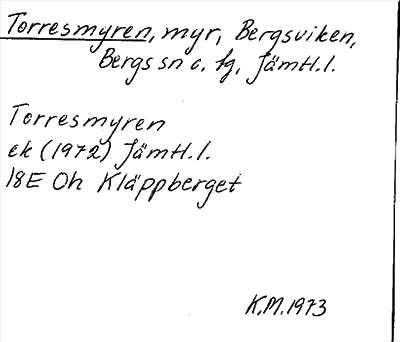 Torresmyren, myr, Bergsviken,
Bergs sn o. tg, Jämtl.l.
Torresmyren
ek (1972) Jämtl.l.
18E Oh Kläppberget
K.M. 1973